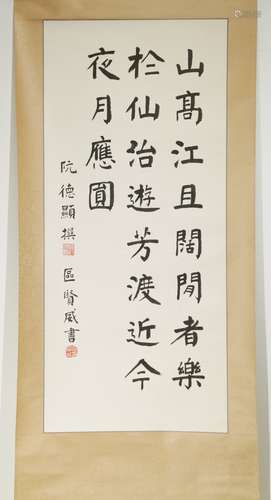 山高江且闊閒者樂
於仙治遊芳渡近今
夜月應圓
阮德顯撰
區賢威書